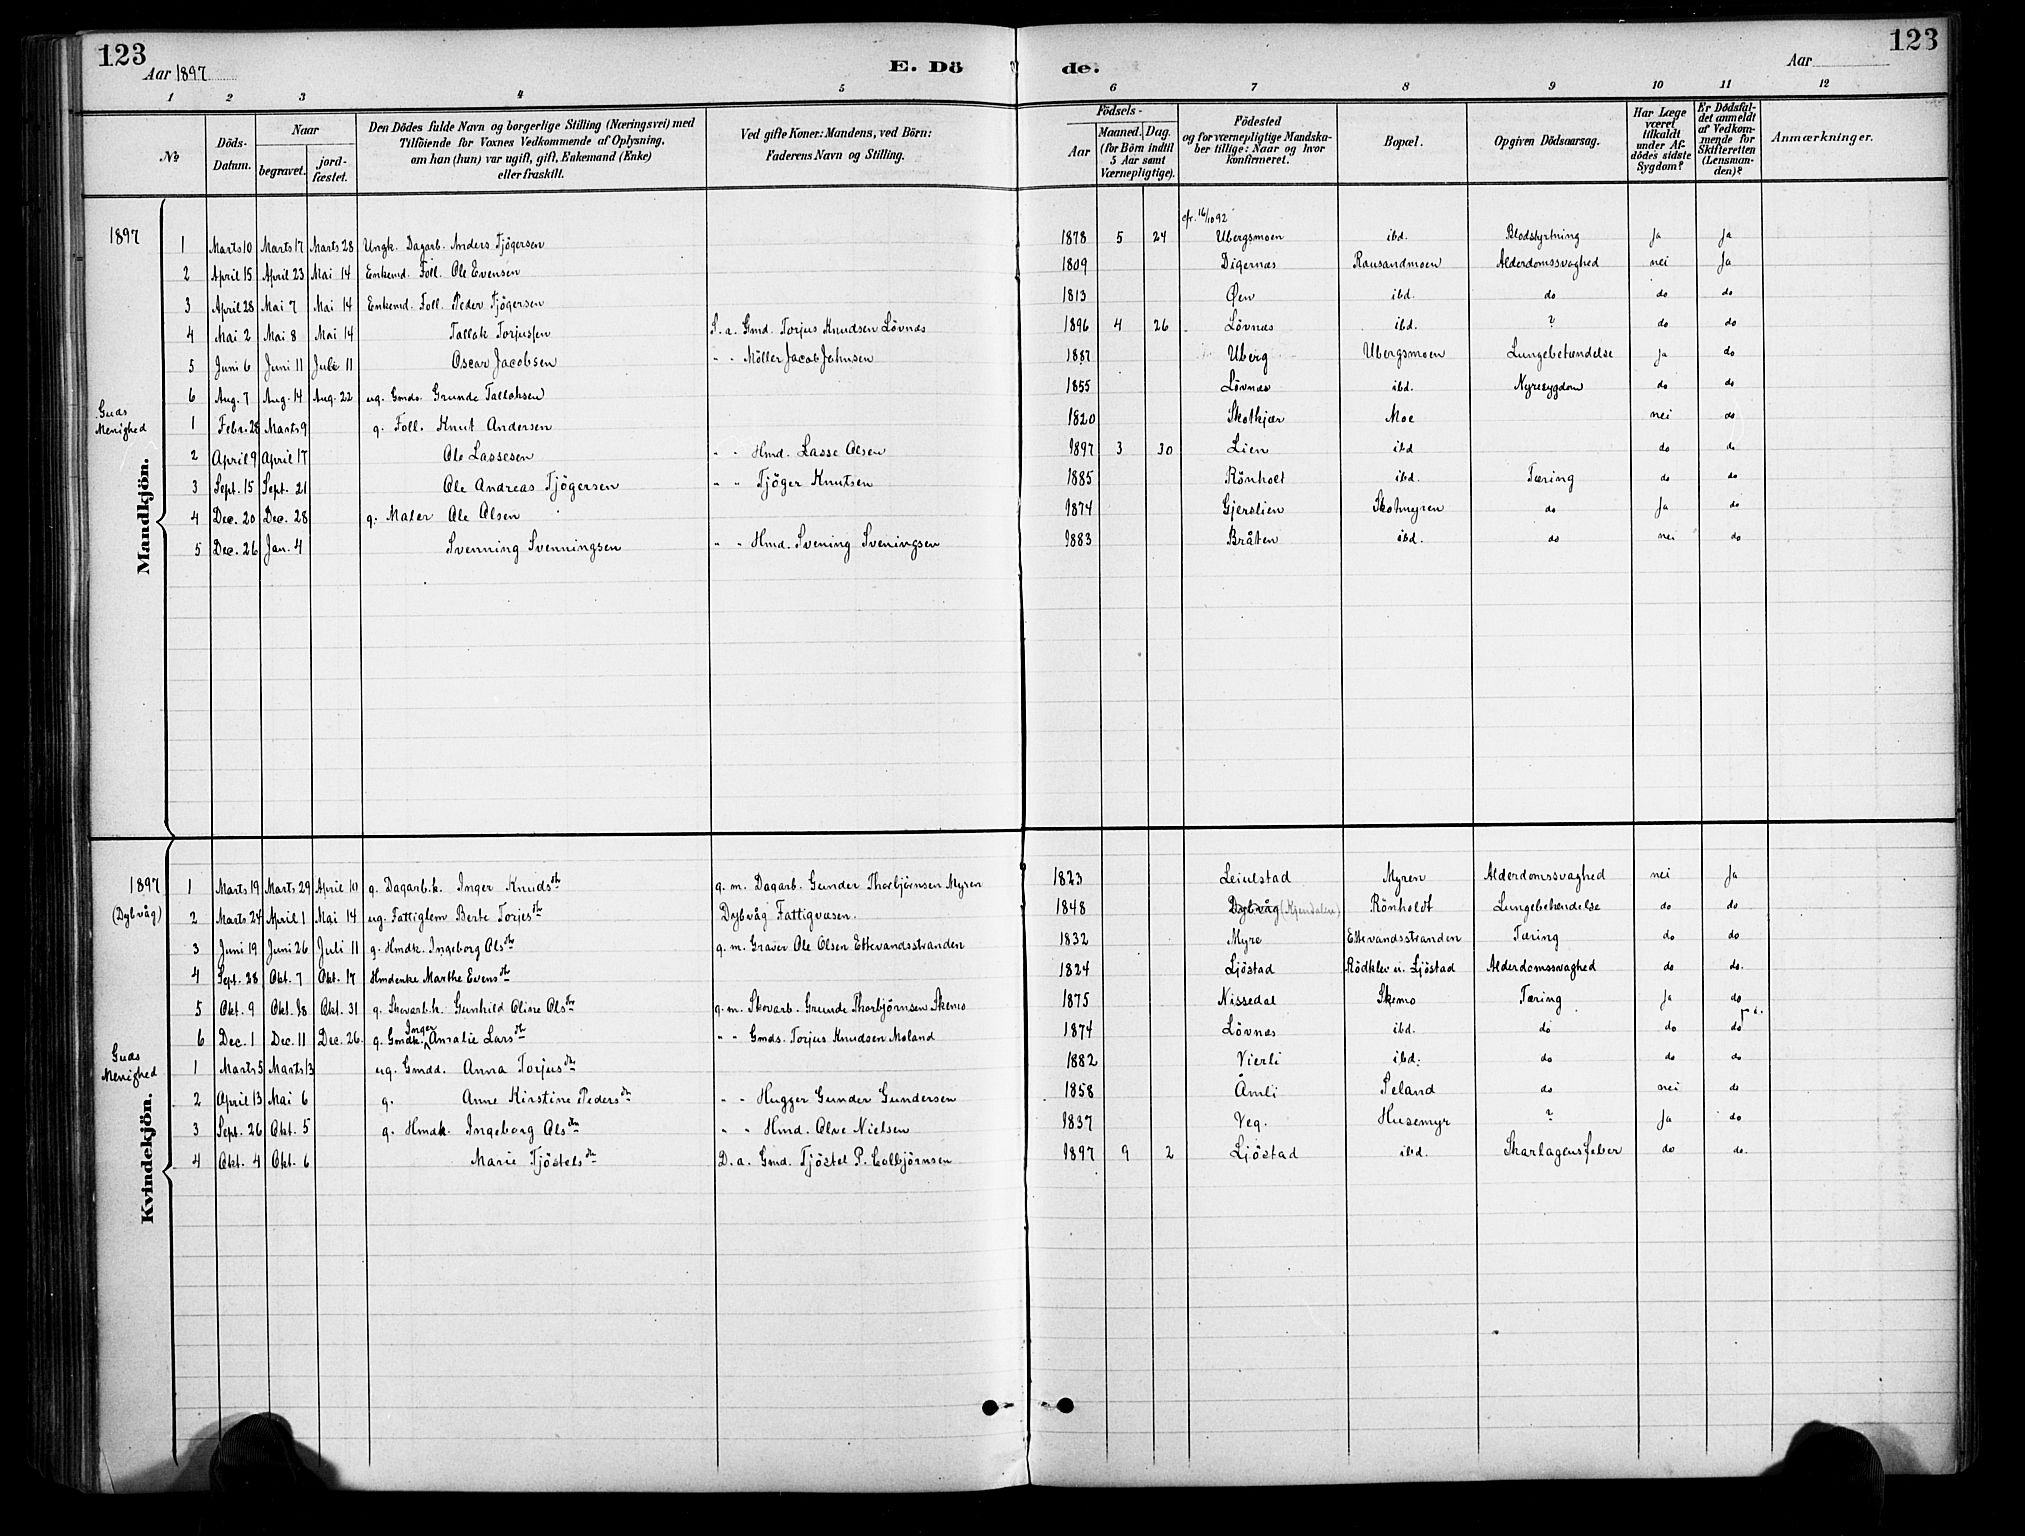 123
Aar 1897
E. Dö
de.
Aar
123
1 2 3 4 5 6 7 8 9 10 11 12
No
Döds-Datum.
Naar
begravet.
jord-fæstet.
Den Dödes fulde Navn og borgerlige Stilling (Næringsvei) med
Tilföiende for Voxnes Vedkommende af Oplysning,
om han (hun) var ugift, gift, Enkemand (Enke)
eller fraskilt.
Ved gifte Koner: Mandens, ved Börn:
Faderens Navn og Stilling.
Födsels-
Aar
Maaned. Dag.
(for Börn indtil
5 Aar samt
Værnepligtige).
Födested
og for værnepligtige Mandska-
ber tillige: Naar og hvor
konfirmeret.
Bopæl.
Opgiven Dödsaarsag.
Har Læge
været
tilkaldt
under Af-
dödes sidste
Sygdom?
Er Dödsfal-
det anmeldt
af Vedkom-
mende for
Skifteretten
(Lensman-
den)?
Anmærkninger.
1897
Mandkjön.
cfr. 16/10 92
1 Marts 10 Marts 17 Marts 28 Ungk. Dagarb. Anders Tjögersen 1878 5 24 Ubergsmoen ibd. Blodstyrtning Ja Ja
2 April 15 April 23 Mai 14 Enkemd. Foll. Ole Evensen 1809 Digernæs Rausandmoen Alderdomssvaghed nei Ja
3 April 28 Mai 7 Mai 14 Enkemd. Foll. Peder Tjögersen 1813 Øen ibd. do do do
4 Mai 2 Mai 8 Mai 14 Tallak Torjussen S. a. Gmd. Torjus Knudsen Lövnæs 1896 4 26 Lövnæs ibd. ? do do
5 Juni 6 Juni 11 Juli 11 Oscar Jacobsen " " Möller Jacob Johnsen 1887 Uberg Ubergsmoen Lungebetændelse Ja do
6 Aug. 7 Aug. 14 Aug. 22 ug. Gmds. Grunde Tallaksen 1855 Lövnæs ibd. Nyresygdom do do
Guds Menighed
1 Febr. 28 Marts 9 g. Foll. Knut Andersen 1820 Skotkjær Moe nei do
2 April 9 April 17 Ole Lassesen " " Hmd. Lasse Olsen 1897 3 30 Lien ibd do do
3 Sept. 15 Sept. 21 Ole Andreas Tjögersen " " Tjöger Knutsen 1885 Rönholt ibd. Tæring do do
4 Dec. 20 Dec. 28 g. Maler Ole Olsen 1874 Gjerslien Skotmyren do Ja do
5 Dec. 26 Jan. 4 Svenning Svenningsen " " Hmd. Svening Sveningsen 1883 Bråten ibd. do nei do
1897
(Dybvåg)
Kvindekjön.
1 Marts 19 Marts 29 April 10 g. Dagarb.k. Inger Knudsdtr g. m. Dagarb. Gunder Thorbjørnsen Myren 1823 Leiulstad Myren Alderdomssvaghed nei Ja
2 Marts 24 April 1 Mai 14 ug. Fattiglem Berte Torjesdtr Dybvåg Fattigvæsen. 1848 Dybvåg (Kjendalen) Rönholdt Lungebetændelse do do
3 Juni 19 Juni 26 Juli 11 g. Hmdk. Ingeborg Olsdtr g. m. Graver Ole Olsen Ettevandsstranden 1832 Myre Ettevandsstranden Tæring do do
4 Sept. 28 Okt. 7 Okt. 17 Hmdenke Marthe Evensdtr 1824 Ljöstad Rödklev u. Ljöstad Alderdomssvaghed do do.
5 Okt. 9 Okt. 18 Okt. 31 g. Skovarb.k. Gunhild Oline Olsdtr g. m. Skovarb. Grunde Thorbjørnsen Skemo 1875 Nissedal Skemo Tæring Ja do
6 Dec. 1 Dec. 11 Dec. 26. g. Gmdk. Inger Amalie Larsdtr " " Gmds. Torjus Knudsen Moland 1874 Lövnæs ibd. do do do
Guds Menighed
1 Marts 5 Marts 13 ug. Gmdd. Anna Torjusdtr 1882 Vierli ibd. do do do
2 April 13 Mai 6 g. Anne Kirstine Pedersdtr " " Hugger Gunder Gundersen 1858 Åmli Seland do nei do
3 Sept. 26 Okt. 5 g. Hmdk. Ingeborg Olsdtr " " Hmd. Olve Nielsen 1837 Veg. Husemyr ? Ja do
4 Okt. 4 Okt. 6 Marie Tjöstelsdtr D. a. Gmd. Tjöstel P. Colbjörnsen 1897 9 2 Ljöstad ibd. Skarlagensfeber do do.